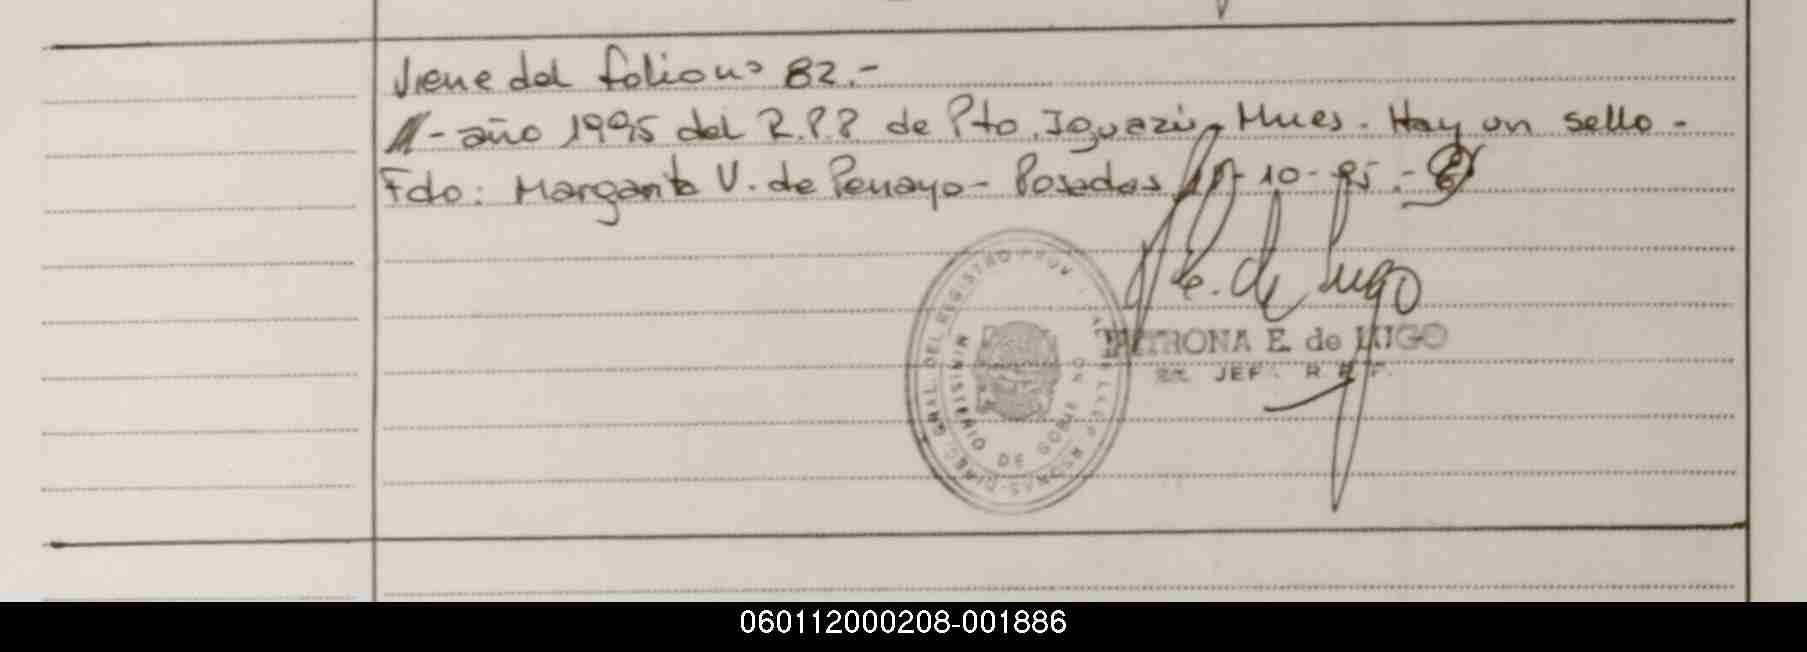 Viene del folio nº 82.-
- año 1995 del R.P.P de Pto. Iguazú, Mnes. Hay un sello -
Fdo: Margarita V. de Penayo - Posadas, 10-95.-
E. de Lugo
PETRONA E. de LUGO
JEF. R.P.P.
DIREC. GRAL. DEL REGISTRO PROV. DE LAS PERSONAS
MINISTERIO DE GOBIERNO
060112000208-001886